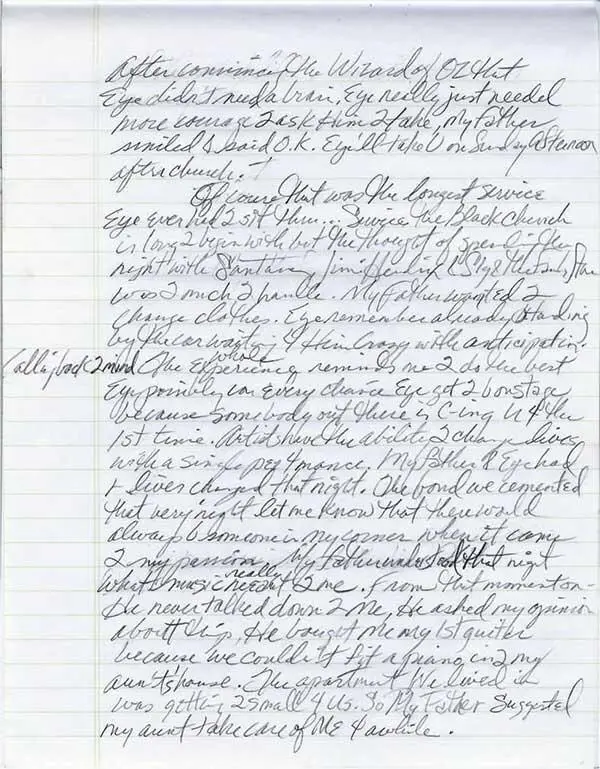 After convincing The Wizard of OZ that
Eye didn't need a brain, Eye really just needed
more courage 2 ask Him 2 take, My Father
smiled & said O.K. Eye'll take U on Sunday Afternoon
after church.
Of course That was The longest service
Eye ever had 2 sit thru... Service The Black church
is long 2 begin with but The thought of spending the
night with Santana, Jimi Hendrix & Sly & The
was 2 much 2 handle. My Father wanted 2
change clothes. Eye remember already standing
by The car waiting 4 Him crazy with anticipation.
Calling back 2 mind The whole experience reminds me 2 do The best
Eye possibly can every chance Eye get 2 b onstage
because somebody out there is C-ing U 4 the
1st time. Artists have The ability 2 change lives
with a single per4mance. My Father & Eye had
R lives changed that night. The bond we cemented
that very night let me know that There would
always b someone in my corner when it came
2 my passion. My Father understood that night
what music really meant 2 me. From that moment on-
He never talked down 2 Me, He asked my opinion
about things, He bought me my 1st guitar
because we couldn't fit a piano in 2 my
aunt's house. The apartment We lived in
was getting 2 small 4 us. So My Father Suggested
my aunt take care of Me 4 awhile.